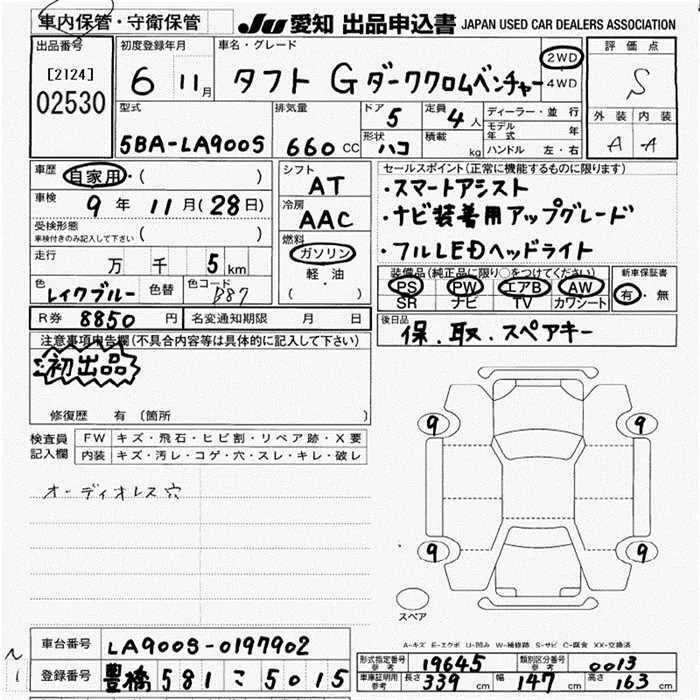 車内保管・守衛保管 JU 愛知 出品申込書 JAPAN USED CAR DEALERS ASSOCIATION
出品番号 初度登録年月 車名・グレード 評価点
[2124] 6 11月 タフト Gダーククロムベンチャー 2WD 4WD S
02530
型式 排気量 ドア 5 定員 4人 ディーラー・並行 外装 内装
5BA-LA900S 660cc 形状 ハコ 積載 kg モデル年式 年 A A
ハンドル 左・右
車歴 自家用・( ) シフト AT セールスポイント(正常に機能するものに限ります)
車検 9年 11月(28日) 冷房 AAC ・スマートアシスト
受検形態 車検付きのみ記入して下さい ( ) ・ナビ装着用アップグレード
走行 万 千 5km 燃料 ガソリン 軽・油 ( ) ・フルLEDヘッドライト
色 レイクブルー 色替 色コード B87 装備品(純正品に限り○をつけてください) 新車保証書
PS PW エアB AW 有・無
SR ナビ TV カワシート
R券 8850円 名変通知期限 月 日 後日品
保.取.スペアキー
注意事項申告欄(不具合内容等は具体的に記入して下さい)
初出品
修復歴 有 (箇所 )
検査員記入欄 FW キズ・飛石・ヒビ割・リペア跡・X要
内装 キズ・汚レ・コゲ・穴・スレ・キレ・破レ
オーディオレス穴
9 9
9 9
スペア
A-キズ E-エクボ U-凹み W-補修跡 S-サビ C-腐食 XX-交換済
車台番号 LA900S-0197902 形式指定番号 参考 19645 類別区分番号 参考 0013
登録番号 豊橋 581 こ 5015 車庫証明用 参考 長さ 339cm 幅 147cm 高さ 163cm